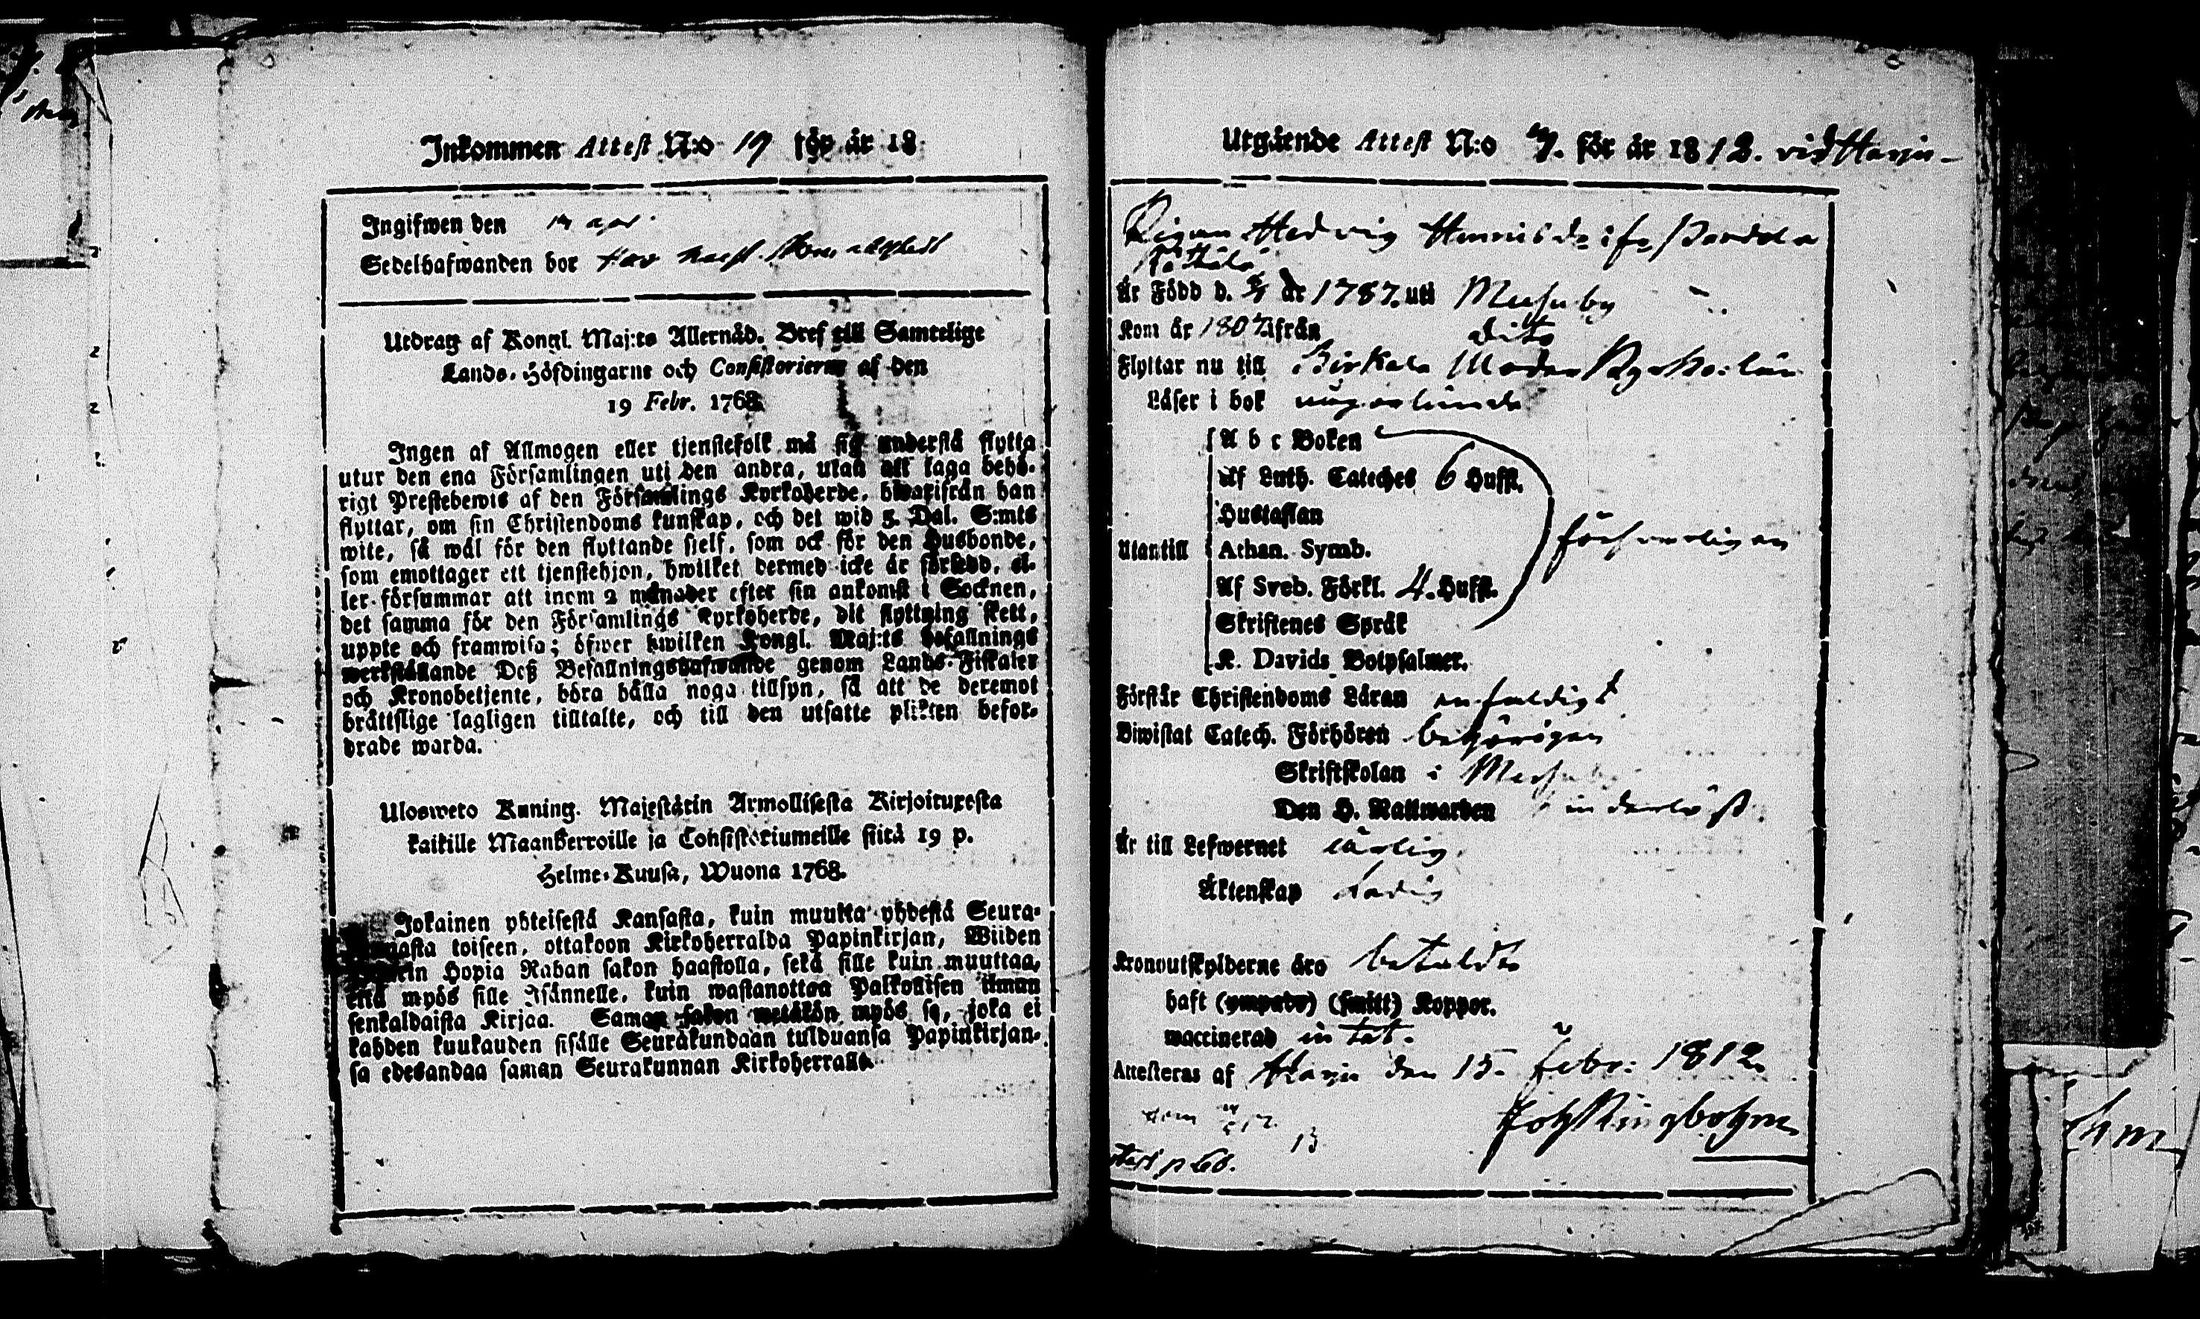 Inkommen Attest N:o 19 för år 18
Ingifwen den 14 apr
Sedelhafwanden bor
Utdrag af Kongl. Maj:ts Allernåd. Bref till Samtelige
Lands-Höfdingarne och Consistorierne af den
19 Febr. 1768.
Ingen af Allmogen eller tjenstefolk må sig understå flytta
utur den ena Församlingen uti den andra, utan att taga behö-
rigt Prestebewis af den Församlings Kyrkoherde, hwarifrån han
flyttar, om sin Christendoms kunskap, och det wid 5 Dal. S:mts
wite, så wäl för den flyttande sjelf, som ock för den Husbonde,
som emottager ett tjenstehjon, hwilket dermed icke är försedd, el-
ler försummar att inom 2 månader efter sin ankomst i Socknen,
det samma för den Församlings Kyrkoherde, dit flyttning skett,
uppte och framwisa; öfwer hwilken Kongl. Maj:ts befallnings
werkställande Deß Befallningshafwande genom Lands-Fiskaler
och Kronobetjente, böra hålla noga tillsyn, så att de deremot
bråttslige lagligen tilltalte, och till den utsatte plikten befor-
drade warda.
Ulosweto Kuning. Majestätin Armollisesta Kirjoituxesta
kaikille Maanherroille ja Consistoriumeille siitä 19 p.
Helme-Kuusa, Wuona 1768.
Jokainen yhteisestä Kansasta, kuin muutta yhdestä Seura-
nasta toiseen, ottakoon Kirkoherralda Papinkirjan, Wiiden
Hopia Rahan sakon haastolla, sekä sille kuin muuttaa,
että myös sille Isännelle, kuin wastanottaa Palkollisen ilman
senkaldaista Kirjaa. Saman sakon wetäkön myös se, joka ei
kahden kuukauden sisälle Seurakundaan tulduansa Papinkirjan-
sa edesandaa saman Seurakunnan Kirkoherralla.
Utgående Attest N:o 7. för år 1812. vid Harju
Pigan Hedvig Henricsdr ifr
Är Född d. år 1787. uti Messuby
Kom år 1807 ifrån dito
Flyttar nu till Birkala Moder Kyrko:
Läser i bok
A b c Boken
Af Luth. Cateches 6 Hufst.
Hustaflan
Utantill Athan. Symb. försvarligen
Af Sveb. Förkl. 4. Hufst.
Skriftenes Språk
K. Davids Botpsalmer.
Förstår Christendoms Läran enfaldigt
Biwistat Catech. Förhören behörigen
Skriftskolan i Messuby
Den H. Nattwarden
Är till Lefwernet ärlig
Äktenskap Ledig
Kronoutskylderne äro betaldte
haft (ympade) (smitt) Koppor.
waccinerad
Attesteras af Harju den 15. Febr: 1812
Joh Ringbohm
13